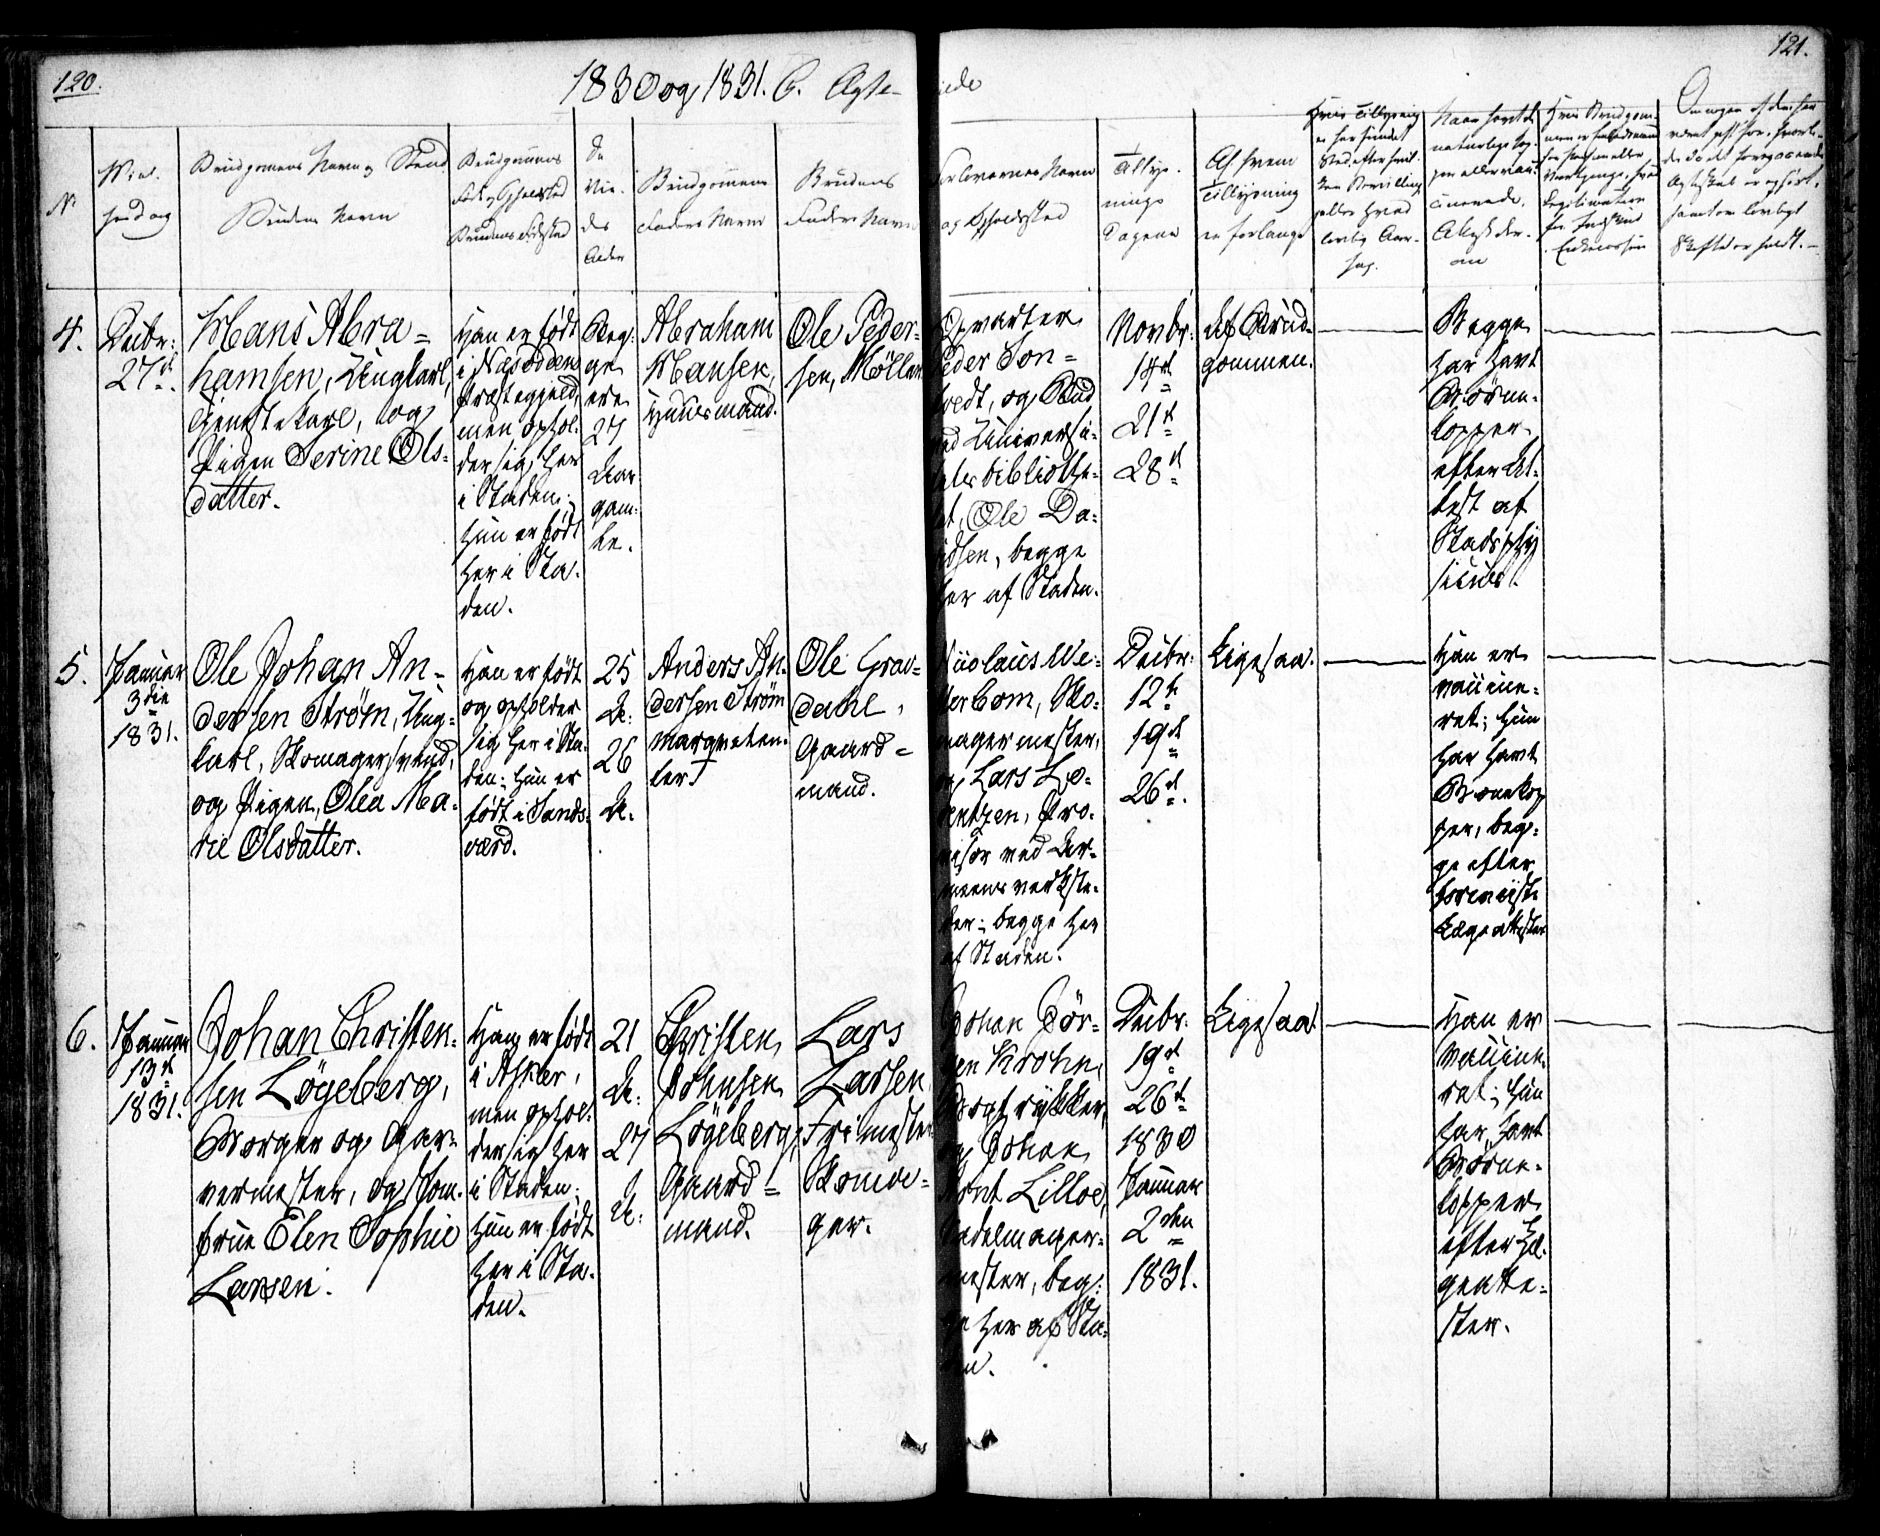 120.
1830 og 1831. C. Ægte-
viede
121.
N.
Viel.
Brudgommens Navn og Stand
Brudens Navn
Brudgommens
Brudens Fødested
De
Vie-
des
Alder
Brudgommens
Faders Navn
Brudens
Faders Navn
Forlovernes Navn
og Opholdssted
Tillys-
nings
Dagene
Af hvem
Tillysning
er forlangt
4.
Decbr:
27d
Hans Abra=
hamsen, Ungkarl,
Tjenstekarl, og
Pigen Serine Ols-
datter.
Han er født
i Næsodden
Præstegjeld,
men ophol-
der sig her
i Staden;
Hun er født
her i Sta-
den.
Beg-
ge
ere
27
Aar
gam-
le.
Abraham
Hansen,
Huusmand.
Ole Peder-
sen, Møller
Opvarter
Peder Son=
tvedt, og Bud
ved Universi-
tetsbibliothe-
ket, Ole Da-
vidsen, begge
her af Staden.
Novbr:
14d
21d
28d
Af Brud-
gommen.
Begge
har havt
Børne-
kopper
efter At-
test af
Stadsphy
sicus.
5.
Januar
3die
1831.
Ole Johan An-
dersen Strøm, Ung-
karl, Skomagersvend,
og Pigen, Olea Ma-
rie Olsdatter.
Han er født
og opholder
sig her i Sta-
den; Hun er
født i Sands-
værd.
25
A:
26
A.
Anders An-
dersen Strøm
Ole Grav-
dahl,
Gaard=
mand.
Nicolaus We-
terbom, Sko-
magermester,
og Lars Lo-
rentzen, Pro-
visor ved Ar-
meens verkste-
der; begge her
af Staden.
Decbr:
12te
19d
26d.
Ligesaa.
Han er
vaccine-
ret; Hun
har havt
Børnekop
per, beg-
ge efter
foreviiste
Lægeattester
6.
Januar
13d
1831.
Johan Christen-
sen Løgeberg,
Borger og Gar-
vermester, og Jom-
frue Elen Sophie
Larsen.
Han er født
i Asker,
men ophol-
der sig her
i Staden;
Hun er født
her i Sta-
den.
21
A:
27
A:
Christen
Johnsen
Løgeberg,
Gaard=
mand.
Lars
Larsen,
Frimester
Skoma-
ger.
Johan Jør-
gen Krohn,
Bogtrykker,
og Johan
Lilloe,
Sadelmager-
mester, beg-
ge her af Sta-
den.
Decbr:
19d
26d
1830
Januar
2den
1831.
Ligesaa.
Han er
vaccine-
ret; Hun
har havt
Børne-
kopper
efter Læ-
geatte-
ster.